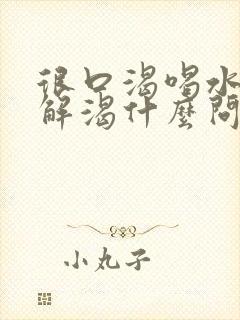 很口渴喝水
解渴什麼問
小丸子